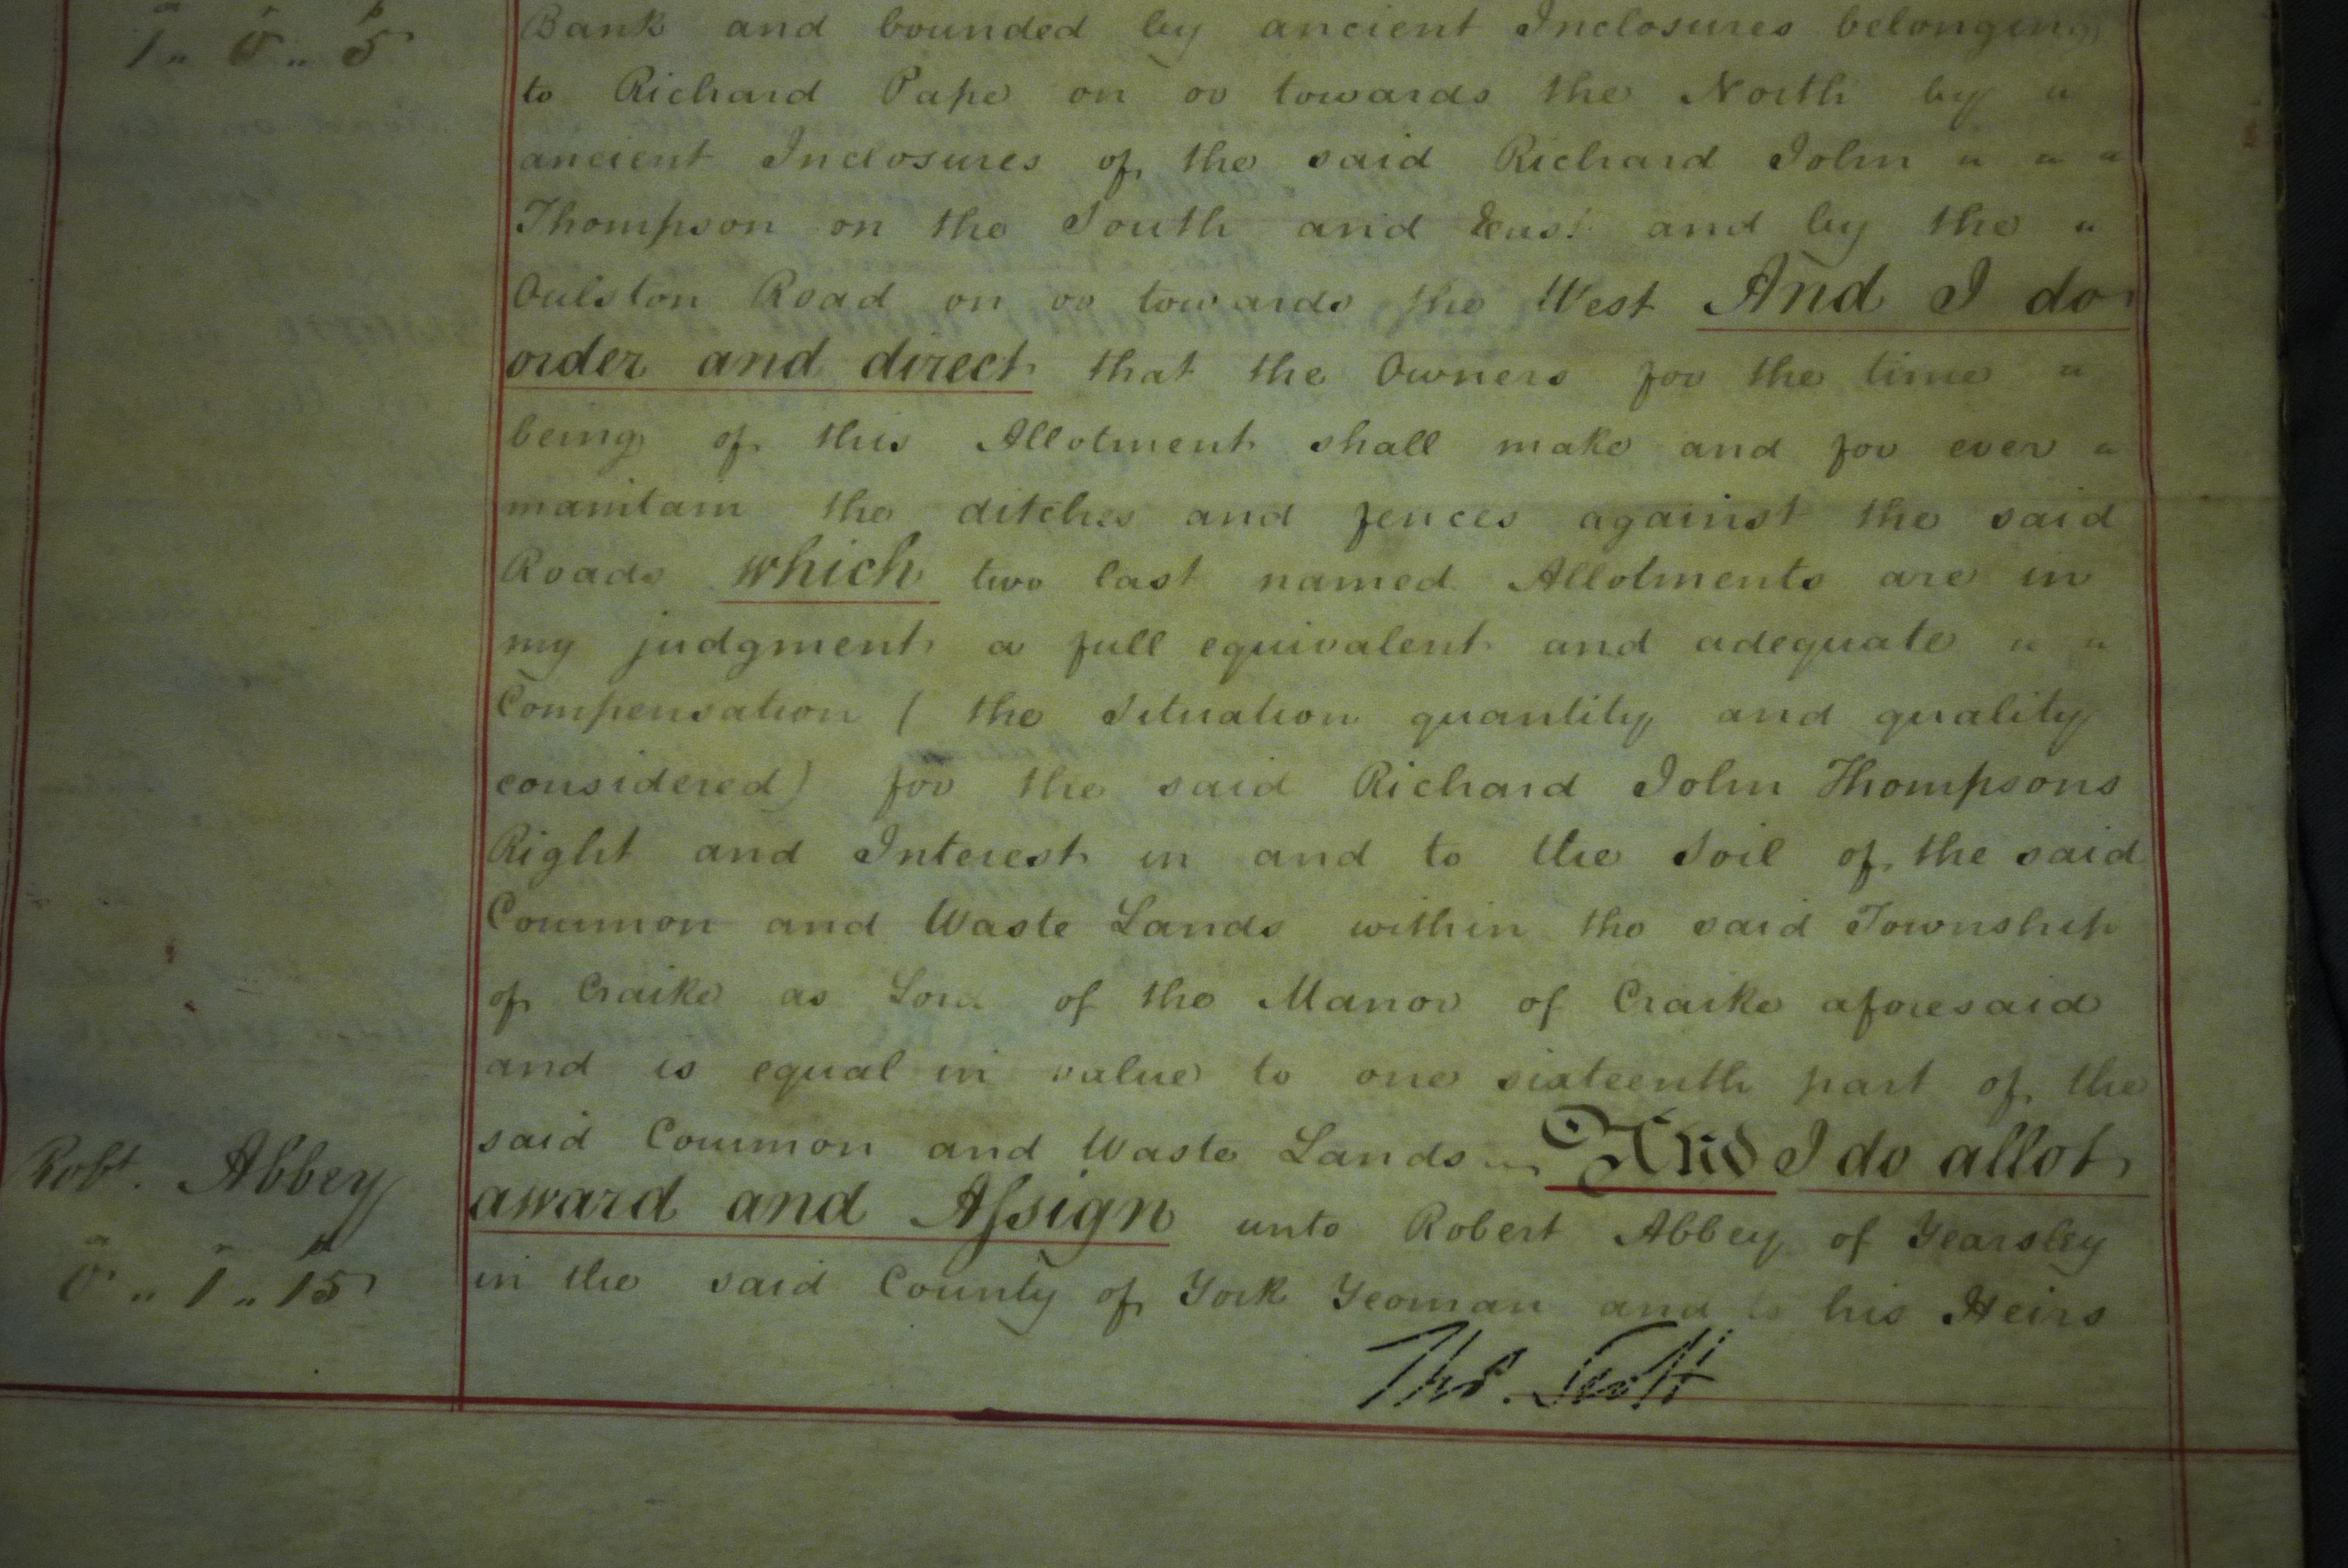 a r p
1 " 0 " 5
Bank and bounded by ancient Inclosures belonging
to Richard Pape on or towards the North by "
ancient Inclosures of the said Richard John " " "
Thompson on the South and East and by the "
Oulston Road on or towards the West And I do
order and direct that the Owners for the time "
being of this Allotment shall make and for ever "
maintain the ditches and fences against the said
Roads which two last named Allotments are in
my judgment a full equivalent and adequate " "
Compensation ( the Situation quantity and quality
considered) for the said Richard John Thompsons
Right and Interest in and to the Soil of the said
Common and Waste Lands within the said Township
of Craike as Lord of the Manor of Craike aforesaid
and is equal in value to one sixteenth part of the
said Common and Waste Lands And I do allot
Robt. Abbey
award and Assign unto Robert Abbey of Yearsley
a r p
0 " 1 " 15
in the said County of York Yeoman and to his Heirs
Thos. Scott